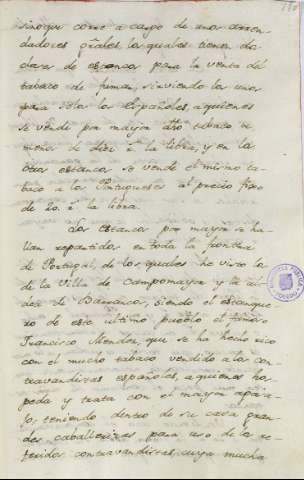 sino que corre a cargo de unos arren-
dadores grâles. los quales tienen dos
clases de estanco para la venta del
tabaco de fumar, sirviendo los unos
para solo los Españoles, a quienes
se vende por mayor dho tabaco a
menos de diez r.ˢ la libra, y en los
otros estancos se vende el mismo ta-
baco a los Portugueses al precio fixo
de 20. r.ˢ la libra.
Los estancos por mayor se ha-
llan repartidos en toda la frontera
de Portugal, de los quales he visto los
de la Villa de Campomayor y la al-
dea de Barranco, siendo el estanque-
ro de este último pueblo el famoso
Francisco Mendez, que se ha hecho rico
con el mucho tabaco vendido a los con-
travandistas españoles, a quienes hos-
peda y trata con el mayor apara-
to, teniendo dentro de su casa gran-
des caballerizas para uso de los re-
feridos contravandistas, cuya mucha